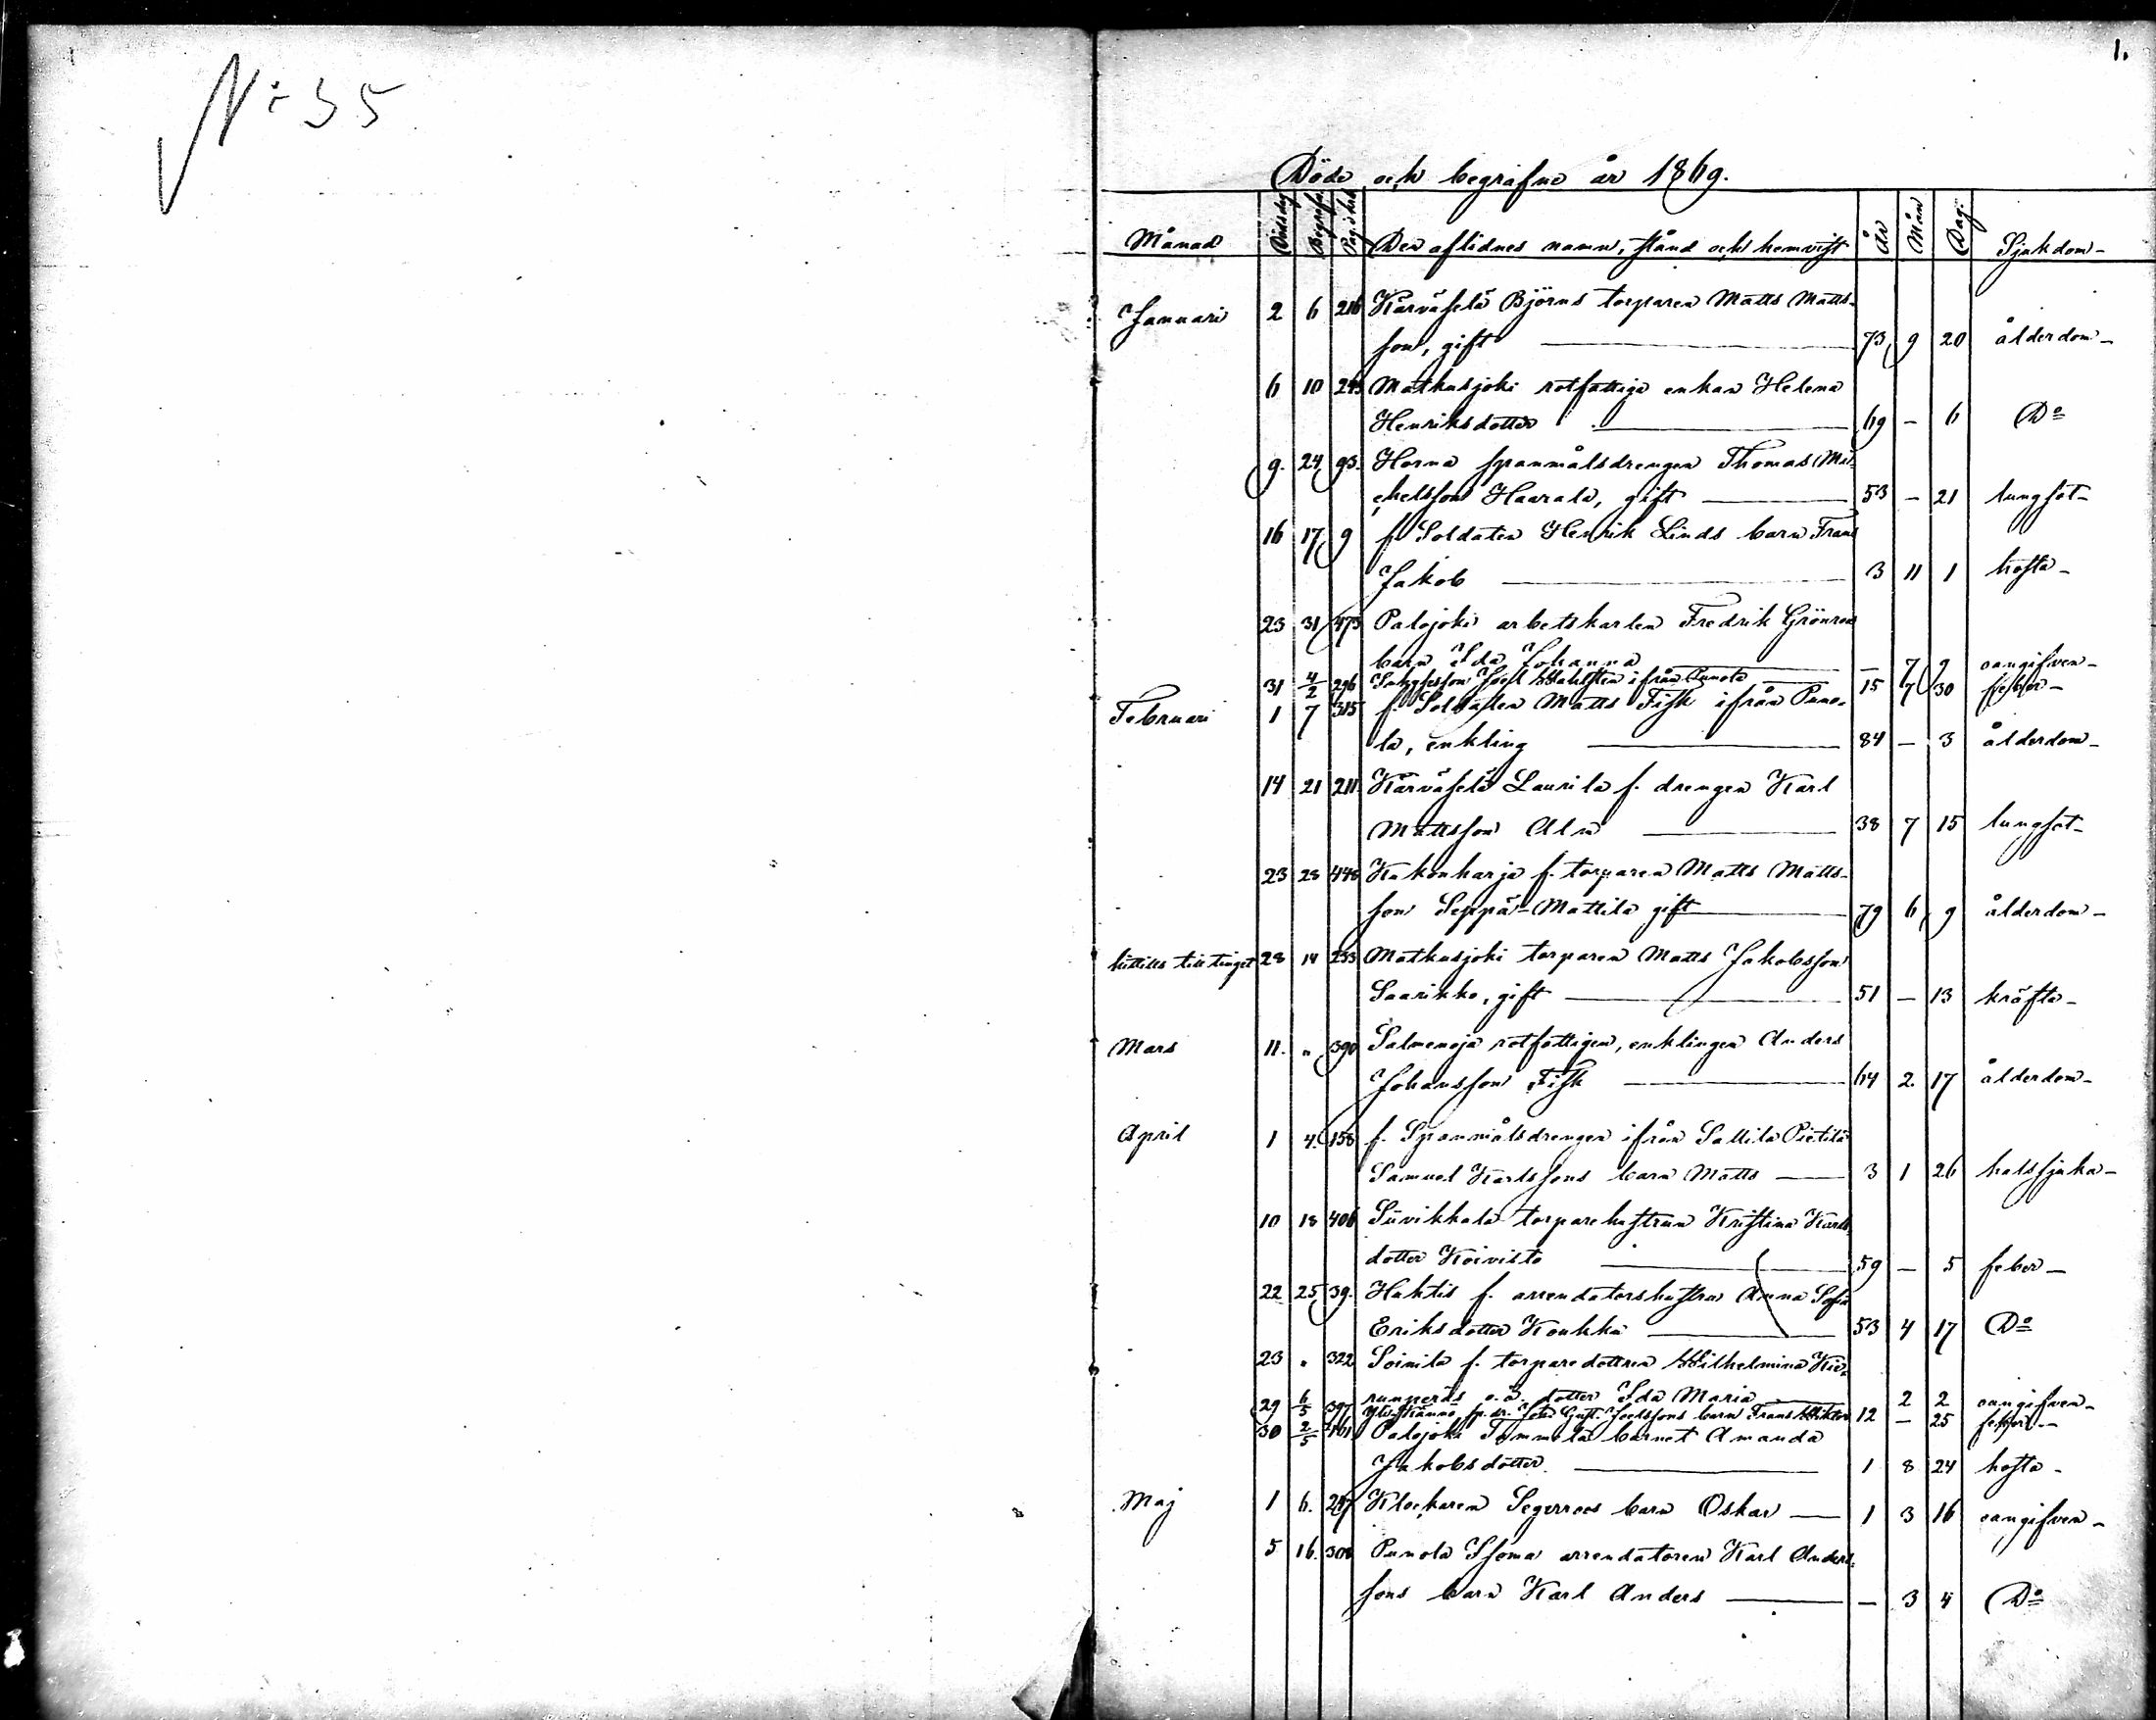 No 35
1.
Döde och begrafne år 1869.
Månad Dödsdag Begrafn. Pag. i kb. Den aflidnes namn, stånd och hemvist År Mån Dag. Sjukdom-
Januari 2 6 216 Kärväselä Björns torparen Matts Matts-
son, gift 73 9 20 ålderdom-
6 10 243 Matkusjoki rotfattiga enkan Helena
Henriksdotter 69 - 6 Do
9. 24 93. Horna spanmålsdrengen Thomas Mi-
chelsson Haarala, gift 53 - 21 lungsot-
16 17 9 f. Soldaten Henrik Linds barn Frans
Jakob 3 11 1 hosta-
23 31 473 Palojoki arbetskarlen Fredrik Grönroos
barn Ida Johanna - 7 9 oangifven-
31 4/2 296 Joel Wahlsten ifrån Punola 15 7 30 feber-
Februari 1 7 315 f. Soldaten Matts Fisk ifrån Puno-
la, enkling 84 - 3 ålderdom-
14 21 211 Kärväselä Laurila f. drengen Karl
Mattsson Aln 38 7 15 lungsot-
23 28 448 Kukonharja f. torparen Matts Matts-
son Seppä-Mattila gift 79 6 9 ålderdom-
hittills till tinget 28 14 233 Matkusjoki torparen Matts Jakobsson
Saarikko, gift 51 - 13 kräfta-
Mars 11. " 390 Salmenoja rotfattigen, enklingen Anders
Johansson Fisk 64 2. 17 ålderdom-
April 1 4. 158 f. Spanmålsdrengen ifrån Sallila Pietilä
Samuel Karlssons barn Matts 3 1 26 halssjuka-
10 18 406 Siivikkala torparehustrun Kristina Karls-
dotter Koivisto 59 - 5 feber-
22 25 39. Huhtis f. arrendatorshustrun Anna Sofia
Eriksdotter Koukku 53 4 17 Do
23 " 322 Soinila f. torparedottren Wilhelmina Kie-
runperäs o.ä. dotter Ida Maria 2 2 oangifven-
29 6/5 397 sp. dr. Joh. Gust. Joelssons barn Frans Wiktor 12 - 25 feber-
30 2/5 461 Palojoki Tommola barnet Amanda
Jakobsdotter 1 8 24 hosta-
Maj 1 6. 247 Klockaren Segerroos barn Oskar 1 3 16 oangifven-
5 16. 308 Punola Isoma arrendatoren Karl Anders-
sons barn Karl Anders - 3 4 Do